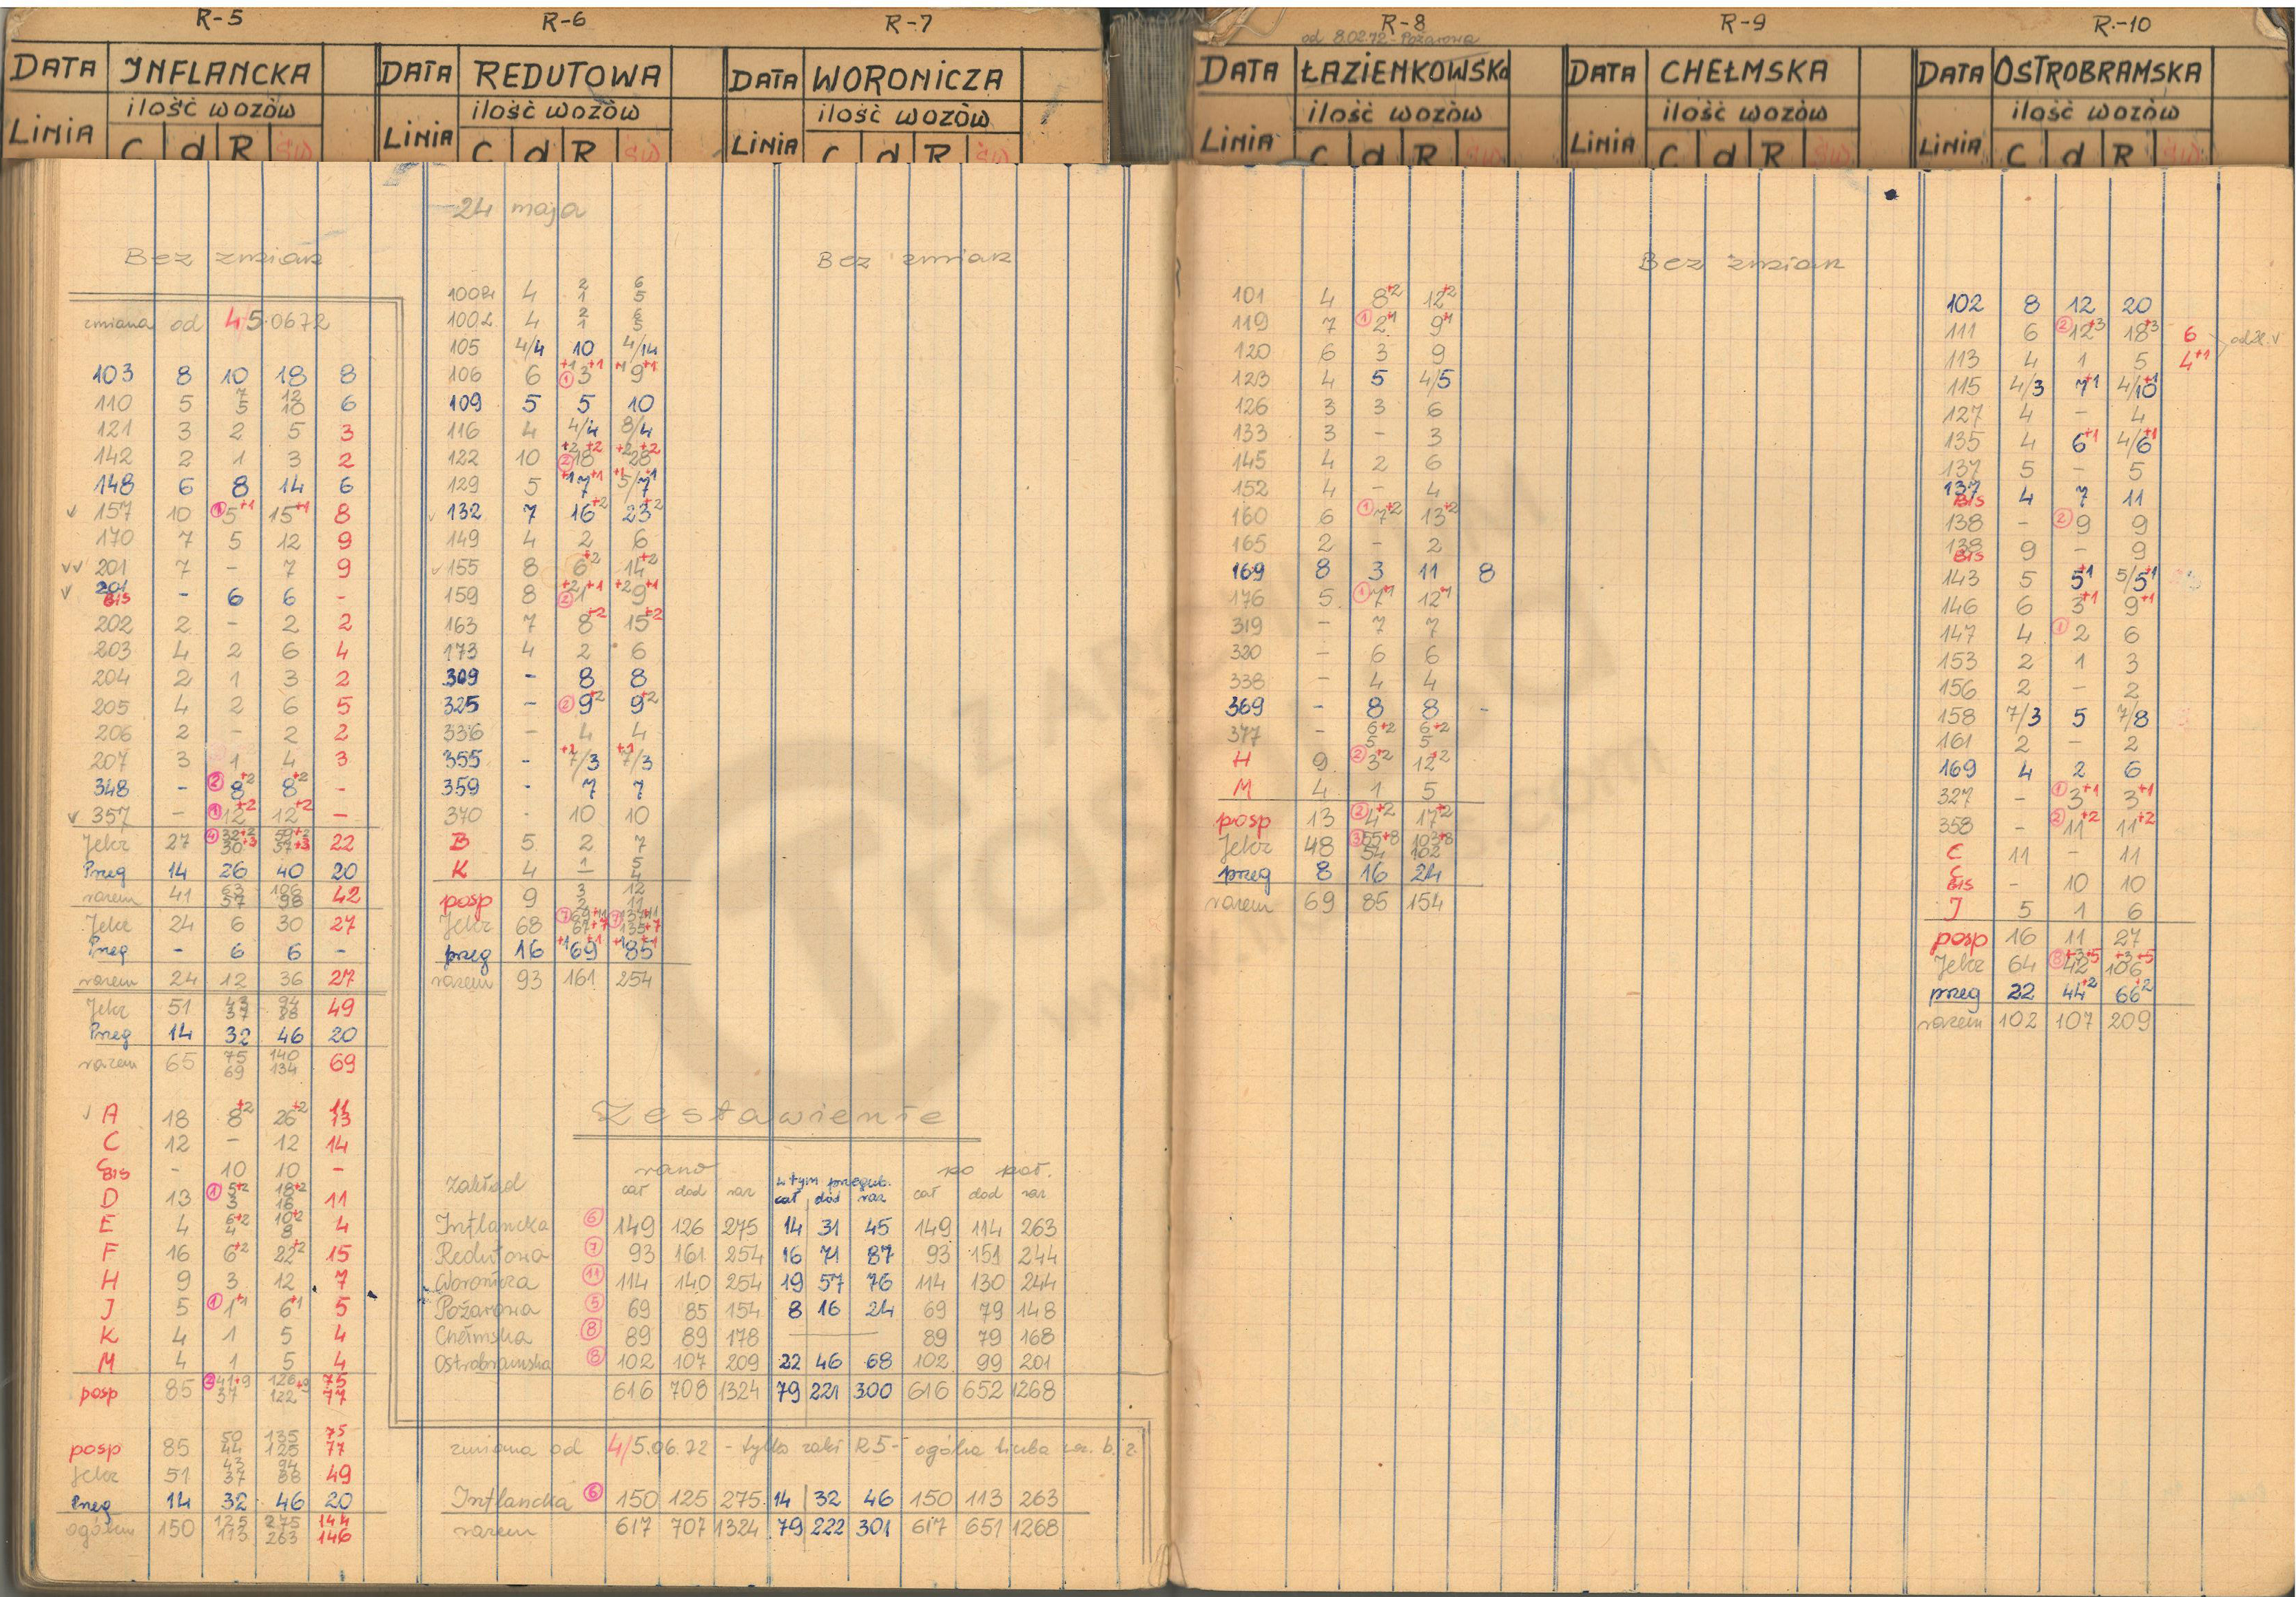 R-5
DATA INFLANCKA
ilość wozów
LINIA C d R św
Bez zmian
zmiana od 4/5.06.72
103 8 10 18 8
110 5 7/5 12/10 6
121 3 2 5 3
142 2 1 3 2
148 6 8 14 6
157 10 ① 5+1 15+1 8
170 7 5 12 9
201 7 - 7 9
201 BIS - 6 6 -
202 2 - 2 2
203 4 2 6 4
204 2 1 3 2
205 4 2 6 5
206 2 - 2 2
207 3 1 4 3
348 - ② 8+2 8+2 -
357 - ① 12+2 12+2 -
Jelcz 27 22
Przeg 14 26 40 20
razem 41 63/57 106/98 42
Jelcz 24 6 30 27
Przeg - 6 6 -
razem 24 12 36 27
Jelcz 51 43/37 94/88 49
Przeg 14 32 46 20
razem 65 75/69 140/134 69
A 18 8+2 26+2 11/13
C 12 - 12 14
C BIS - 10 10 -
D 13 ① 5+2/3 18+2/16 11
E 4 6+2/4 10+2/8 4
F 16 6+2 22+2 15
H 9 3 12 7
J 5 ① 1+1 6+1 5
K 4 1 5 4
M 4 1 5 4
posp 85 41+9/37 126+9/122 75/77
posp 85 50/44 135/125 75/77
Jelcz 51 43/37 94/88 49
Przeg 14 32 46 20
ogółem 150 125/113 275/263 144/146
R-6
DATA REDUTOWA
ilość wozów
LINIA C d R św
24 maja
100 4 2/1 6/5
100 4 2/1 6/5
105 4/4 10 4/14
106 6 ① 3 9
109 5 5 10
116 4 4/4 8/4
122 10 ② 18 28
129 5 7 5/7
132 7 16+2 23+2
149 4 2 6
155 8 6+2 14+2
159 8 ② 1 9
163 7 8+2 15+2
173 4 2 6
309 - 8 8
325 - ② 9+2 9+2
336 - 4 4
355 - 7/3 7/3
359 - 7 7
370 - 10 10
B 5 2 7
K 4 1 5/4
posp 9 3/2 12/11
Jelcz 68
przeg 16 69 85
razem 93 161 254
R-7
DATA WORONICZA
ilość wozów
LINIA C d R św
Bez zmian
Zestawienie
zakład rano w tym przegub. po poł.
cał dod raz cał dod raz cał dod raz
Inflancka ⑥ 149 126 275 14 31 45 149 114 263
Redutowa ⑦ 93 161 254 16 71 87 93 151 244
Woronicza ⑪ 114 140 254 19 57 76 114 130 244
Pożarowa ⑤ 69 85 154 8 16 24 69 79 148
Chełmska ⑧ 89 89 178 — 89 79 168
Ostrobramska ⑧ 102 107 209 22 46 68 102 99 201
616 708 1324 79 221 300 616 652 1268
zmiana od 4/5.06.72 - tylko zakł R5 - ogólna liczba b. z.
Inflancka ⑥ 150 125 275 14 32 46 150 113 263
razem 617 707 1324 79 222 301 617 651 1268
R-8
od 8.02.72 - Pożarowa
DATA ŁAZIENKOWSKA
ilość wozów
LINIA C d R św
101 4 8+2 12+2
119 7 ① 2+1 9+1
120 6 3 9
123 4 5 4/5
126 3 3 6
133 3 - 3
145 4 2 6
152 4 - 4
160 6 ① 7+2 13+2
165 2 - 2
169 8 3 11 8
176 5 ① 7+1 12+1
319 - 7 7
320 - 6 6
338 - 4 4
369 - 8 8 -
377 - 6+2/5 6+2/5
H 9 ② 3+2 12+2
M 4 1 5
posp 13 ② 4+2 17+2
Jelcz 48 ③ 55+8/54 103+8/102
przeg 8 16 24
razem 69 85 154
R-9
DATA CHEŁMSKA
ilość wozów
LINIA C d R św
Bez zmian
R-10
DATA OSTROBRAMSKA
ilość wozów
LINIA C d R św
102 8 12 20
111 6 ② 12+3 18+3 6
113 4 1 5 4+1
115 4/3 7+1 4/10+1
127 4 - 4
135 4 6+1 4/6+1
137 5 - 5
137 BIS 4 7 11
138 - ② 9 9
138 BIS 9 - 9
143 5 5+1 5/5+1
146 6 3+1 9+1
147 4 ① 2 6
153 2 1 3
156 2 - 2
158 7/3 5 7/8
161 2 - 2
169 4 2 6
327 - ① 3+1 3+1
358 - ② 11+2 11+2
C 11 - 11
C BIS - 10 10
J 5 1 6
posp 16 11 27
Jelcz 64 ⑧ 42 106
przeg 22 44+2 66+2
razem 102 107 209